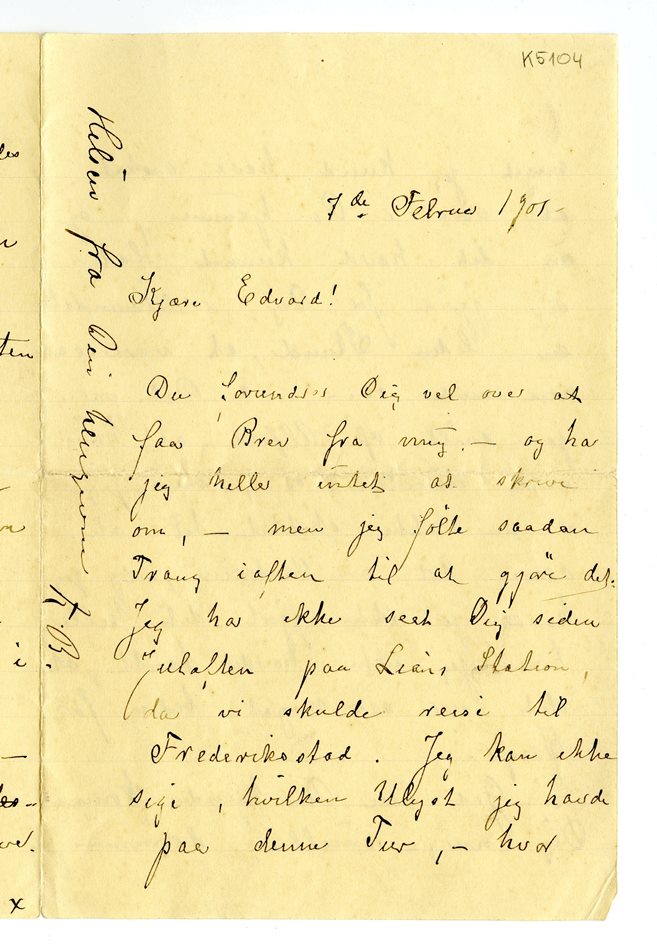 K5104
7de Februar 1901 –
Kjære Edvard!
Du forundres Dig vel over at
faa Brev fra mig. – og har
jeg heller intet at skrive
om, – men jeg følte saadan
Trang iaften til at gjøre det.
Jeg har ikke seet Dig siden
Juleaften paa Lians Station,
da vi skulde reise til
Frederiksstad. Jeg kan ikke
sige, hvilken Ulyst jeg havde
paa denne Tur, – hvor
Hilsen fra Din hengivne K.B.
ten
i
x